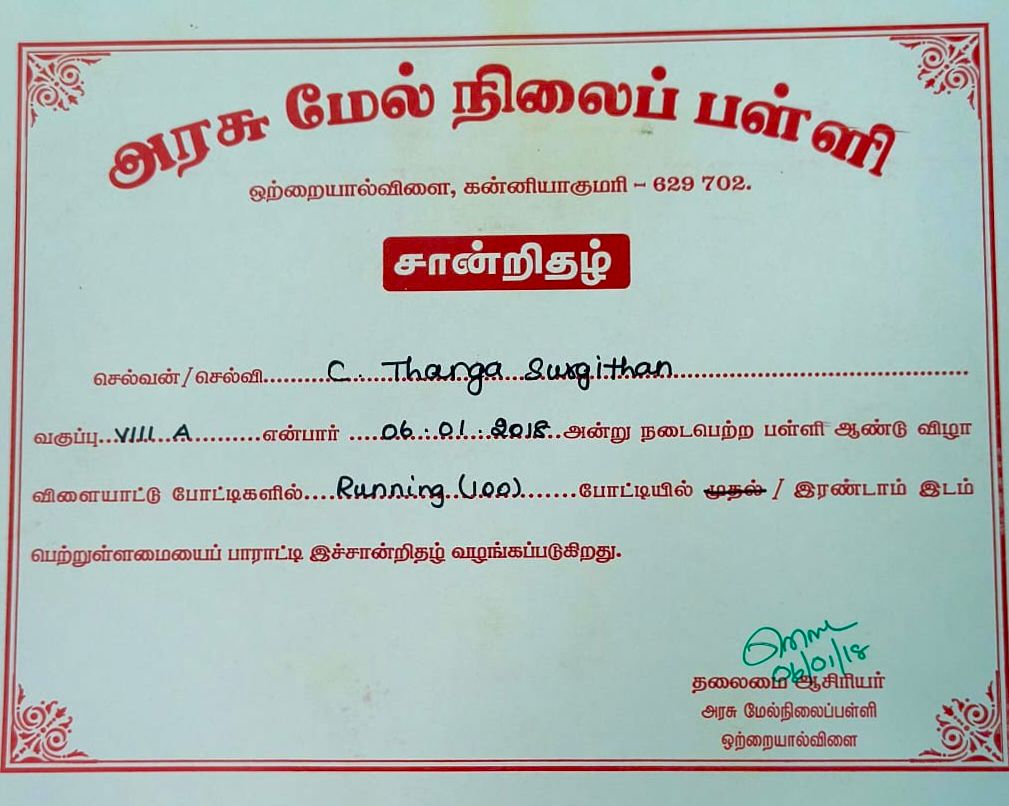 அரசு மேல் நிலைப் பள்ளி
ஒற்றையால்விளை, கன்னியாகுமரி - 629 702.
சான்றிதழ்
செல்வன்/செல்வி............C. Thanga Surgithan............
வகுப்பு...VIII A............என்பார் ....06.01.2018...அன்று நடைபெற்ற பள்ளி ஆண்டு விழா
விளையாட்டு போட்டிகளில்....Running (100)........போட்டியில் முதல் / இரண்டாம் இடம்
பெற்றுள்ளமையைப் பாராட்டி இச்சான்றிதழ் வழங்கப்படுகிறது.
06/01/18
தலைமை ஆசிரியர்
அரசு மேல்நிலைப்பள்ளி
ஒற்றையால்விளை